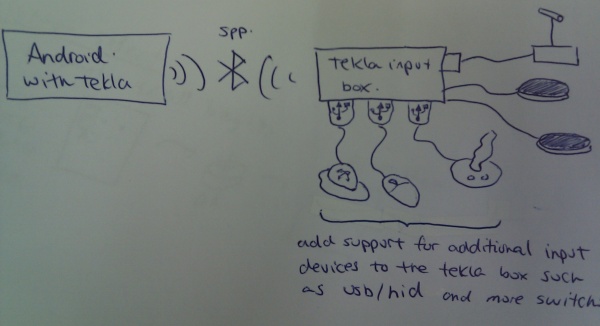 Android.
with Tekla
spp.
Tekla input
box.
add support for additional input
devices to the tekla box such
as usb/hid and more switch